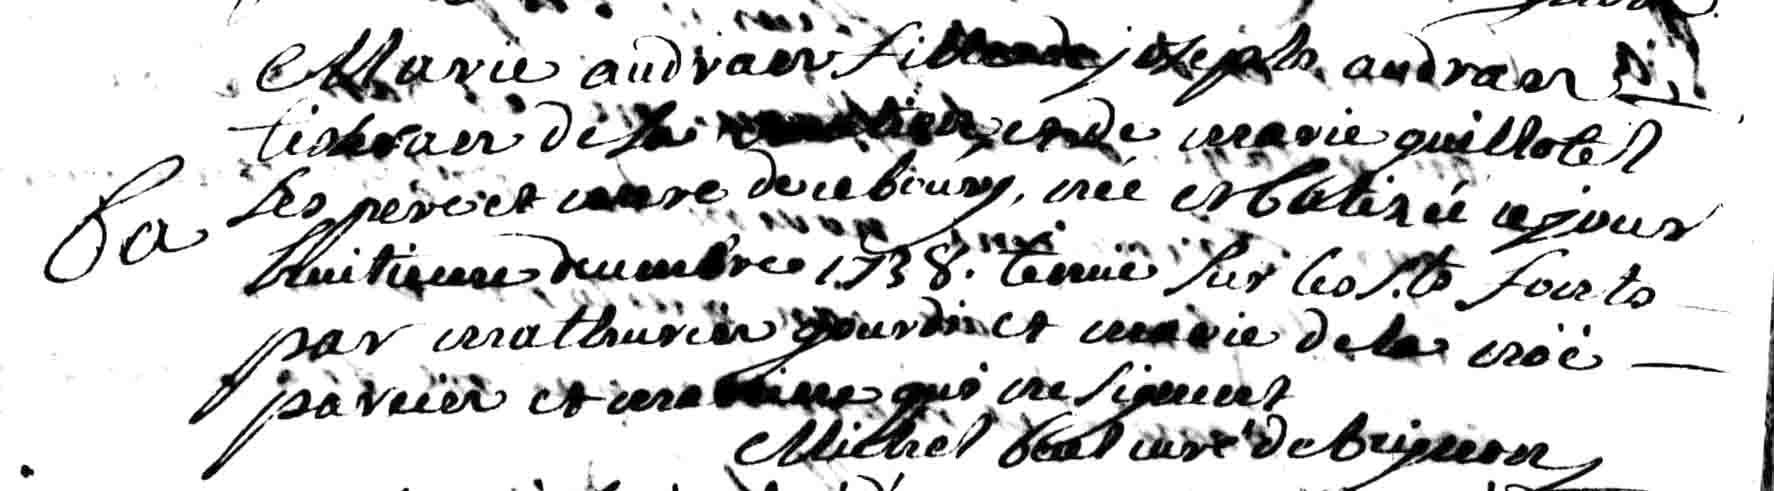 Marie audrain fille de joseph audrain
tisseran de et de marie guillotel
Les pere et mere de ce bourg, née et batizée ce jour
ba
huitieme decembre 1738. tenuë sur les sts fonts
par mathurin gourdin et marie de la noë
parein et mareine qui ne signent
Michel curé de brignon